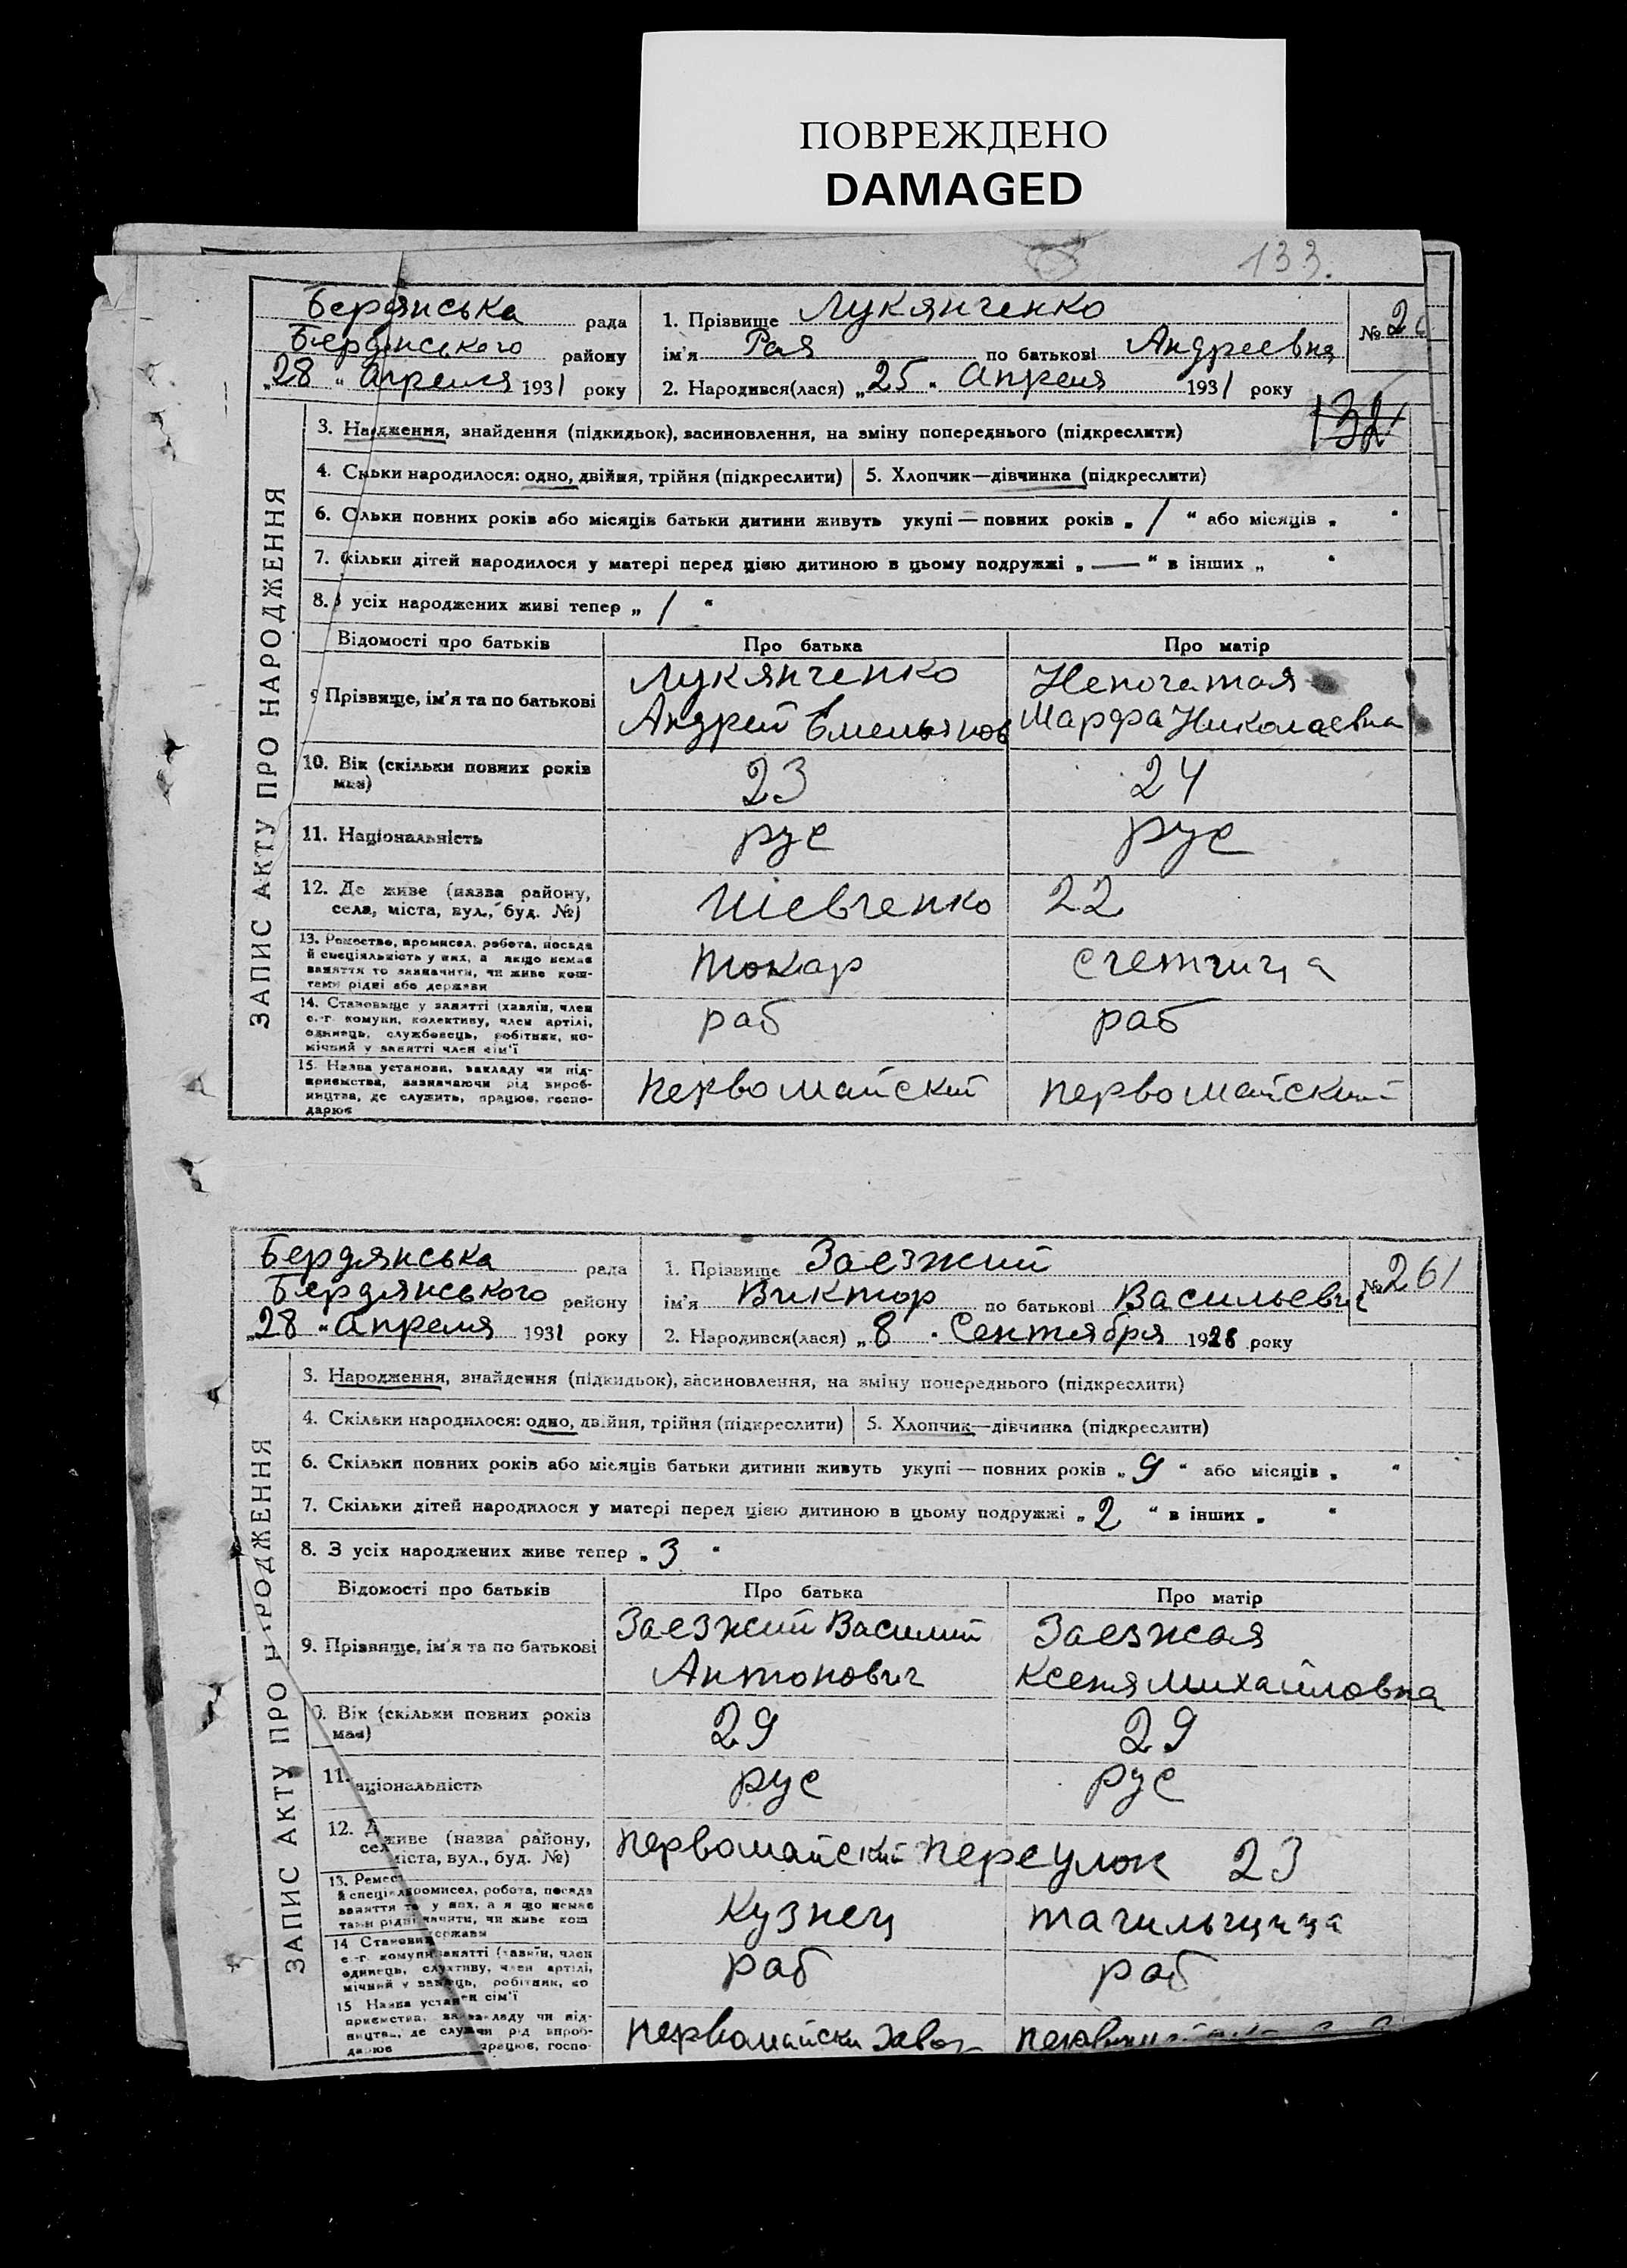 ПОВРЕЖДЕНО
DAMAGED
133.
Бердянська рада
Бердянського району
„28 “ Апреля 1931 року
1. Прізвище Лукянченко
ім'я Рая по батькові Андреевна
2. Народився(лася) „25 “ Апреля 1931 року
№ 2
132
ЗАПИС АКТУ ПРО НАРОДЖЕННЯ
3. На дження, знайдення (підкидьок), засиновлення, на зміну попереднього (підкреслити)
4. Скьки народилося: одно, двійня, трійня (підкреслити) 5. Хлопчик—дівчинка (підкреслити)
6. Скльки повних років або місяців батьки дитини живуть укупі — повних років „ 1 “ або місяців „ “
7. Скільки дітей народилося у матері перед цією дитиною в цьому подружжі „ — “ в інших „ “
8. З усіх народжених живі тепер „ 1 “
Відомості про батьків Про батька Про матір
9 Прізвище, ім'я та по батькові
Лукянченко
Андрей Емельянов
Непочатая
Марфа Николаевна
10. Вік (скільки повних років має) 23 24
11. Національність рус рус
12. Де живе (назва району,
села, міста, вул., буд. №)
Шевченко 22
13. Ремество, промисел, робота, посада
й спеціяльність у них, а якщо немає
заняття то зазначити, чи живе кош-
тами рідні або держави
токар счетчица
14. Становище у занятті (хазяїн, член
с.-г. комуни, колективу, член артілі,
одинець, службовець, робітник, по-
мічний у занятті член сім'ї
раб раб
15. Назва установи, закладу чи під-
приємства, зазначаючи рід вироб-
ництва, де служить, працює, госпо-
дарює
первомайский первомайский
Бердянська рада
Бердянського району
„28 “ Апреля 1931 року
1. Прізвище Заезжий
ім'я Виктор по батькові Васильевич
2. Народився(лася) „8 “ Сентября 1928 року
№ 261
ЗАПИС АКТУ ПРО Н РОДЖЕННЯ
3. Народження, знайдення (підкидьок), засиновлення, на зміну попереднього (підкреслити)
4. Скільки народилося: одно, двійня, трійня (підкреслити) 5. Хлопчик—дівчинка (підкреслити)
6. Скільки повних років або місяців батьки дитини живуть укупі — повних років „ 9 “ або місяців „ “
7. Скільки дітей народилося у матері перед цією дитиною в цьому подружжі „ 2 “ в інших „ “
8. З усіх народжених живе тепер „ 3 “
Відомості про батьків Про батька Про матір
9. Прізвище, ім'я та по батькові
Заезжий Василий
Антонович
Заезжая
Ксеня Михайловна
0. Вік (скільки повних років
має)
29 29
11. аціональність рус рус
12. Д живе (назва району,
сел міста, вул., буд. №)
первомайский переулок 23
13. Ремес промисел, робота, посада
й спеціял у них, а я що немає
заняття то начити, чи живе кош
тами рідні держави
кузнец тачильщица
14 Станови занятті (хазяїн, член
с -г. комуни ктиву, член артілі,
одинець, служ ець, робітник, по
мічний у зан н сім'ї
раб раб
15 Назва устан кладу чи під-
приємства, за и рід вироб-
ництва, де служи працює, госпо-
дарює
первомайски завод